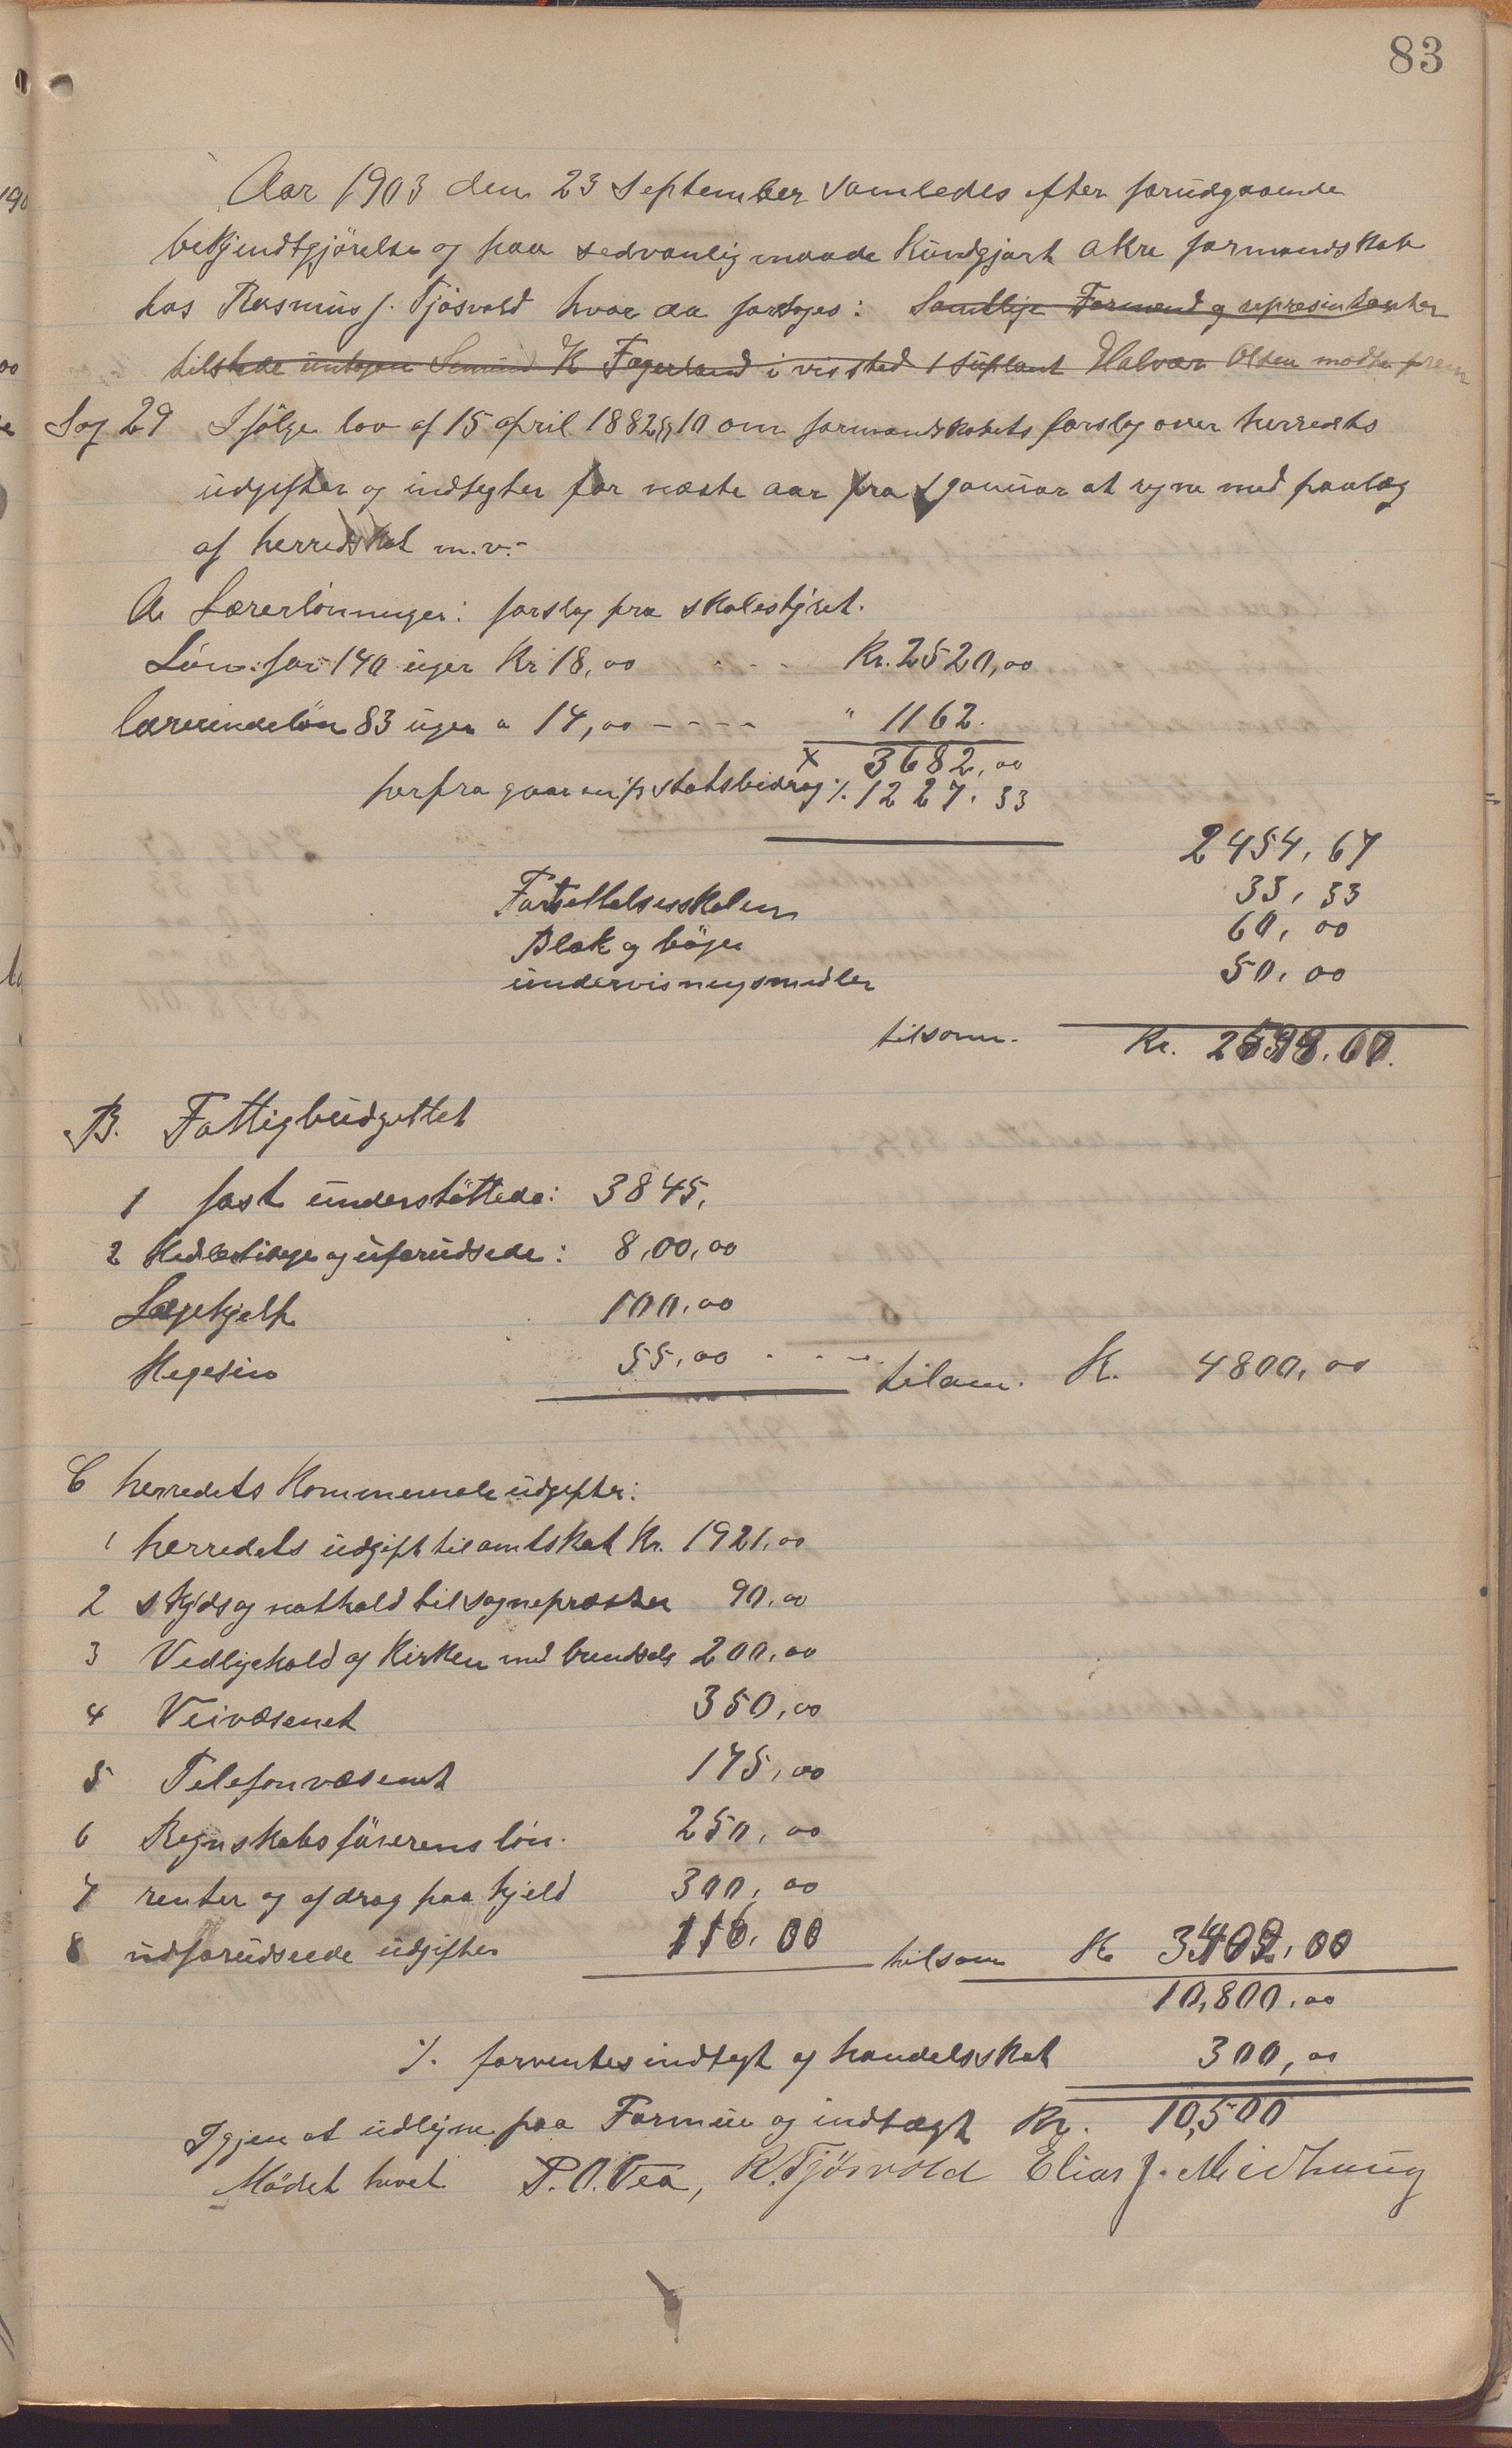 83
Aar 1903 den 23 September samledes efter forudgaaende
bekjendtgjörelse og paa sedvanlig maade Kundgjort Akre formandskab
hos Rasmus J. Tjösvold hvor da foretoges: Samtlige Formænd og represintanter
tilstede K Fagerland i vis sted 1 suplant Halvor Olsen modte frem
Sag 29 Ifölge lov af 15 april 1882 § 10 om formandskabets forslag over herredets
udgifter og indtegter for næste aar fra 1 januar at regne med paalæg
af herredskat m.v.-
A Lærerlönninger: forslag fra skolestyret.
Lön for 140 uger Kr 18,00 - - - Kr. 2520,00
lærerindelön 83 uger a 14,00 - - - - " 1162.
x 3682,00
herfra gaar en ⅓ statsbidrag ./. 1227.33
2454,67
Fortsettelsesskolen 33,33
Blæk og böger 60,00
undervisningsmidler 50,00
tilsam. Kr. 2598.00.
B. Fattigbudgettet
1 fast understöttede: 3845,
2 uforudsede: 8,00,00
Lægehjelp 100,00
55,00 - - - tilsam. K. 4800,00
C herredets Kommunale udgifter:
1 herredets udgift til amtskat Kr. 1921,00
2 skyds og nathold til sognepræsten 90,00
3 Vedligehold af Kirken med brændsels 200,00
4 Veivæsenet 350,00
5 Telefonvæsenet 175,00
6 Regnskabsförerens lön. 250,00
7 renter og afdrag paa gjeld 300,00
8 udforudseede udgifter 116.00 tilsam K 3402,00
10,800,00
./. forventes indtegt af handelsskat 300,00
Igjen at udligne paa Formue og indtægt Kr. 10,500
Mödet hevet P. O. Vea, R. Tjösvold Elias J. Midhaug